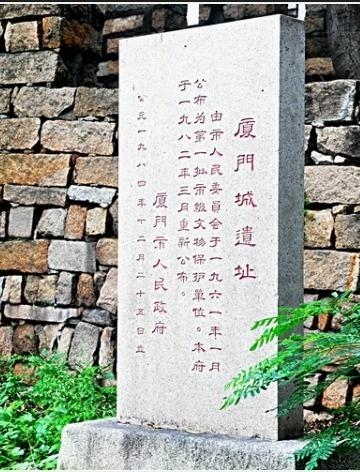 厦門城遺址
由市人民委員会于一九六一年一月
公布为第一批市級文物保护单位。本府
于一九八二年三月重新公布。
厦門市人民政府
公元一九八四年十二月二十五日立